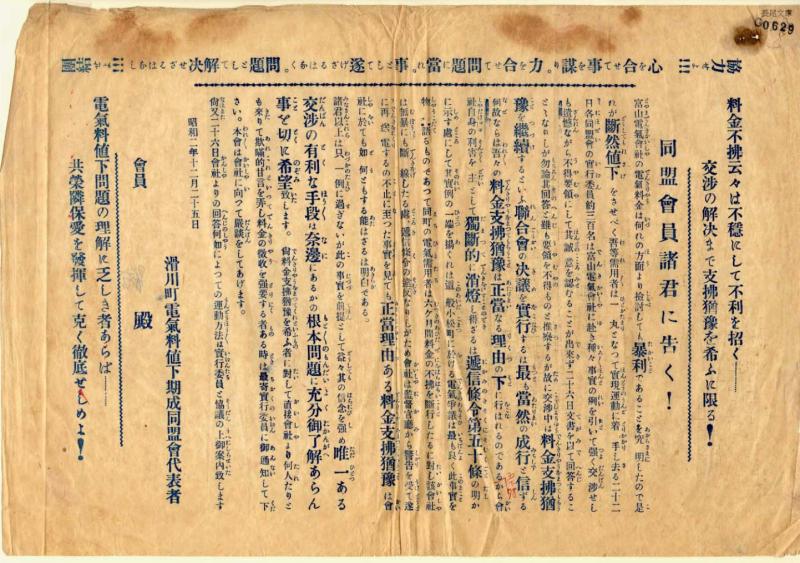 長尾文庫
G0629
協力!!! 心を合せて事を謀り。力を合せて問題に當れ。事として遂げざるはなく。問題として解決せざるはなし!!!團結
料金不拂云々は不穩にして不利を招く――
交渉の解決まで支拂猶豫を希ふに限る!
同盟會員諸君に告く!
富山電氣會社の電氣料金は何れの方面より檢討しても暴利であることを究明したので是
れが斷然値下をさせべく吾等需用者は一丸となつて實現運動に着手し去る二十二
日各同盟會の實行委員約三百名は富山電氣會社に赴き種々事實の例を引いて强く交渉せし
も遺憾ながら不得要領にして其誠意を認むることが出來ず二十六日文書を以て回答するこ
ととなりしが勿論其回答と雖も要領を不得ものと推察するが故に交渉中は料金支拂猶
豫を繼續するといふ聯合會の決議を實行するは最も當然の成行と信する
何故ならは吾々の料金支拂猶豫は正當なる理由の下に行はれるのであるから會
社自身の利害を主として獨斷的に消燈し得ざるは遞信條令第五十條の明か
に示す處にして其實例の一端を揚ぐれは道一般小松町に於ける電氣爭議は最も良く此事實を
物語るものであつて同町の電氣需用者は六ケ月間料金の不拂を斷行したるに對し該會社
は無暴にも斷線したる處遞信條令の違反なりしがため會社は監督官廳から警告を受て遂
に再送電するの不止に至つた事實を見ても正當理由ある料金支拂猶豫は會
社に於ても如何ともする能はざるは明白である。
諸君以上は只一例に過ぎないが此の事實を前提として益々其の信念を强め唯一ある
交渉の有利な手段は奈邊にあるかの根本問題に充分御了解あらん
事を切に希望致します。尙料金支拂猶豫を希ふ者に對して直接會社より何人たりと
も來りて欺瞞的甘言を弄し料金の徵收を强要する者ある時は最寄實行委員に御通知して下
さい。本會は會社に向つて嚴談をしてあげます。
尙又二十六日會社よりの回答何如によつての運動方法は實行委員と協議の上御案內致します
昭和二年十二月二十五日
滑川町電氣料値下期成同盟會代表者
會員 殿
電氣料値下問題の理解に乏しき者あらば――
共榮隣保愛を發揮して克く徹底せしめよ!